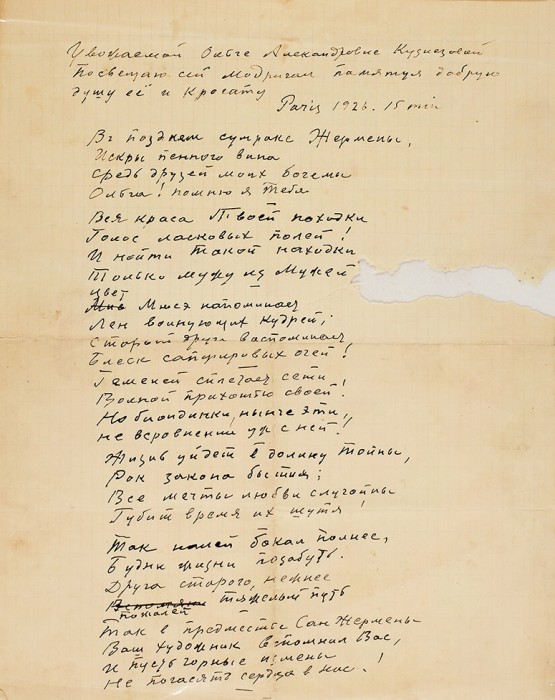 Уважаемой Ольге Александровне Кузнецовой
Посвещаю сей мадригал памятуя добрую
душу её и красату
Paris 1926. 15 mai
Въ позднем сумраке Жермены,
Искры пенного вина
средь друзей моих богемы
Ольга! помню я Тебя
Вся краса Твоей походки
Голос ласковых полей!
И найти такой находки
Только мужу из мужей
цвет
напоминает
Лен волнующих кудрей;
Старый друг воспоминает
Блеск сапфировых очей!
сплетает сети
Волной прихотью своей!
Но блондинки, нынче эти,
не всровнении уж с ней!
Жизнь уйдет в долину тайны,
Рок закона быстия;
Все мечты любви случайны
Губит время их шутя!
Так налей бокал полнее,
Будни жизни позабудь.
Друга старого, нежнее
тяжелый путь
пожалей
Так в предместье Сан Жермены
Ваш художник вспомнил Вас,
И пусть горные измены
Не погасят сердца в нас!